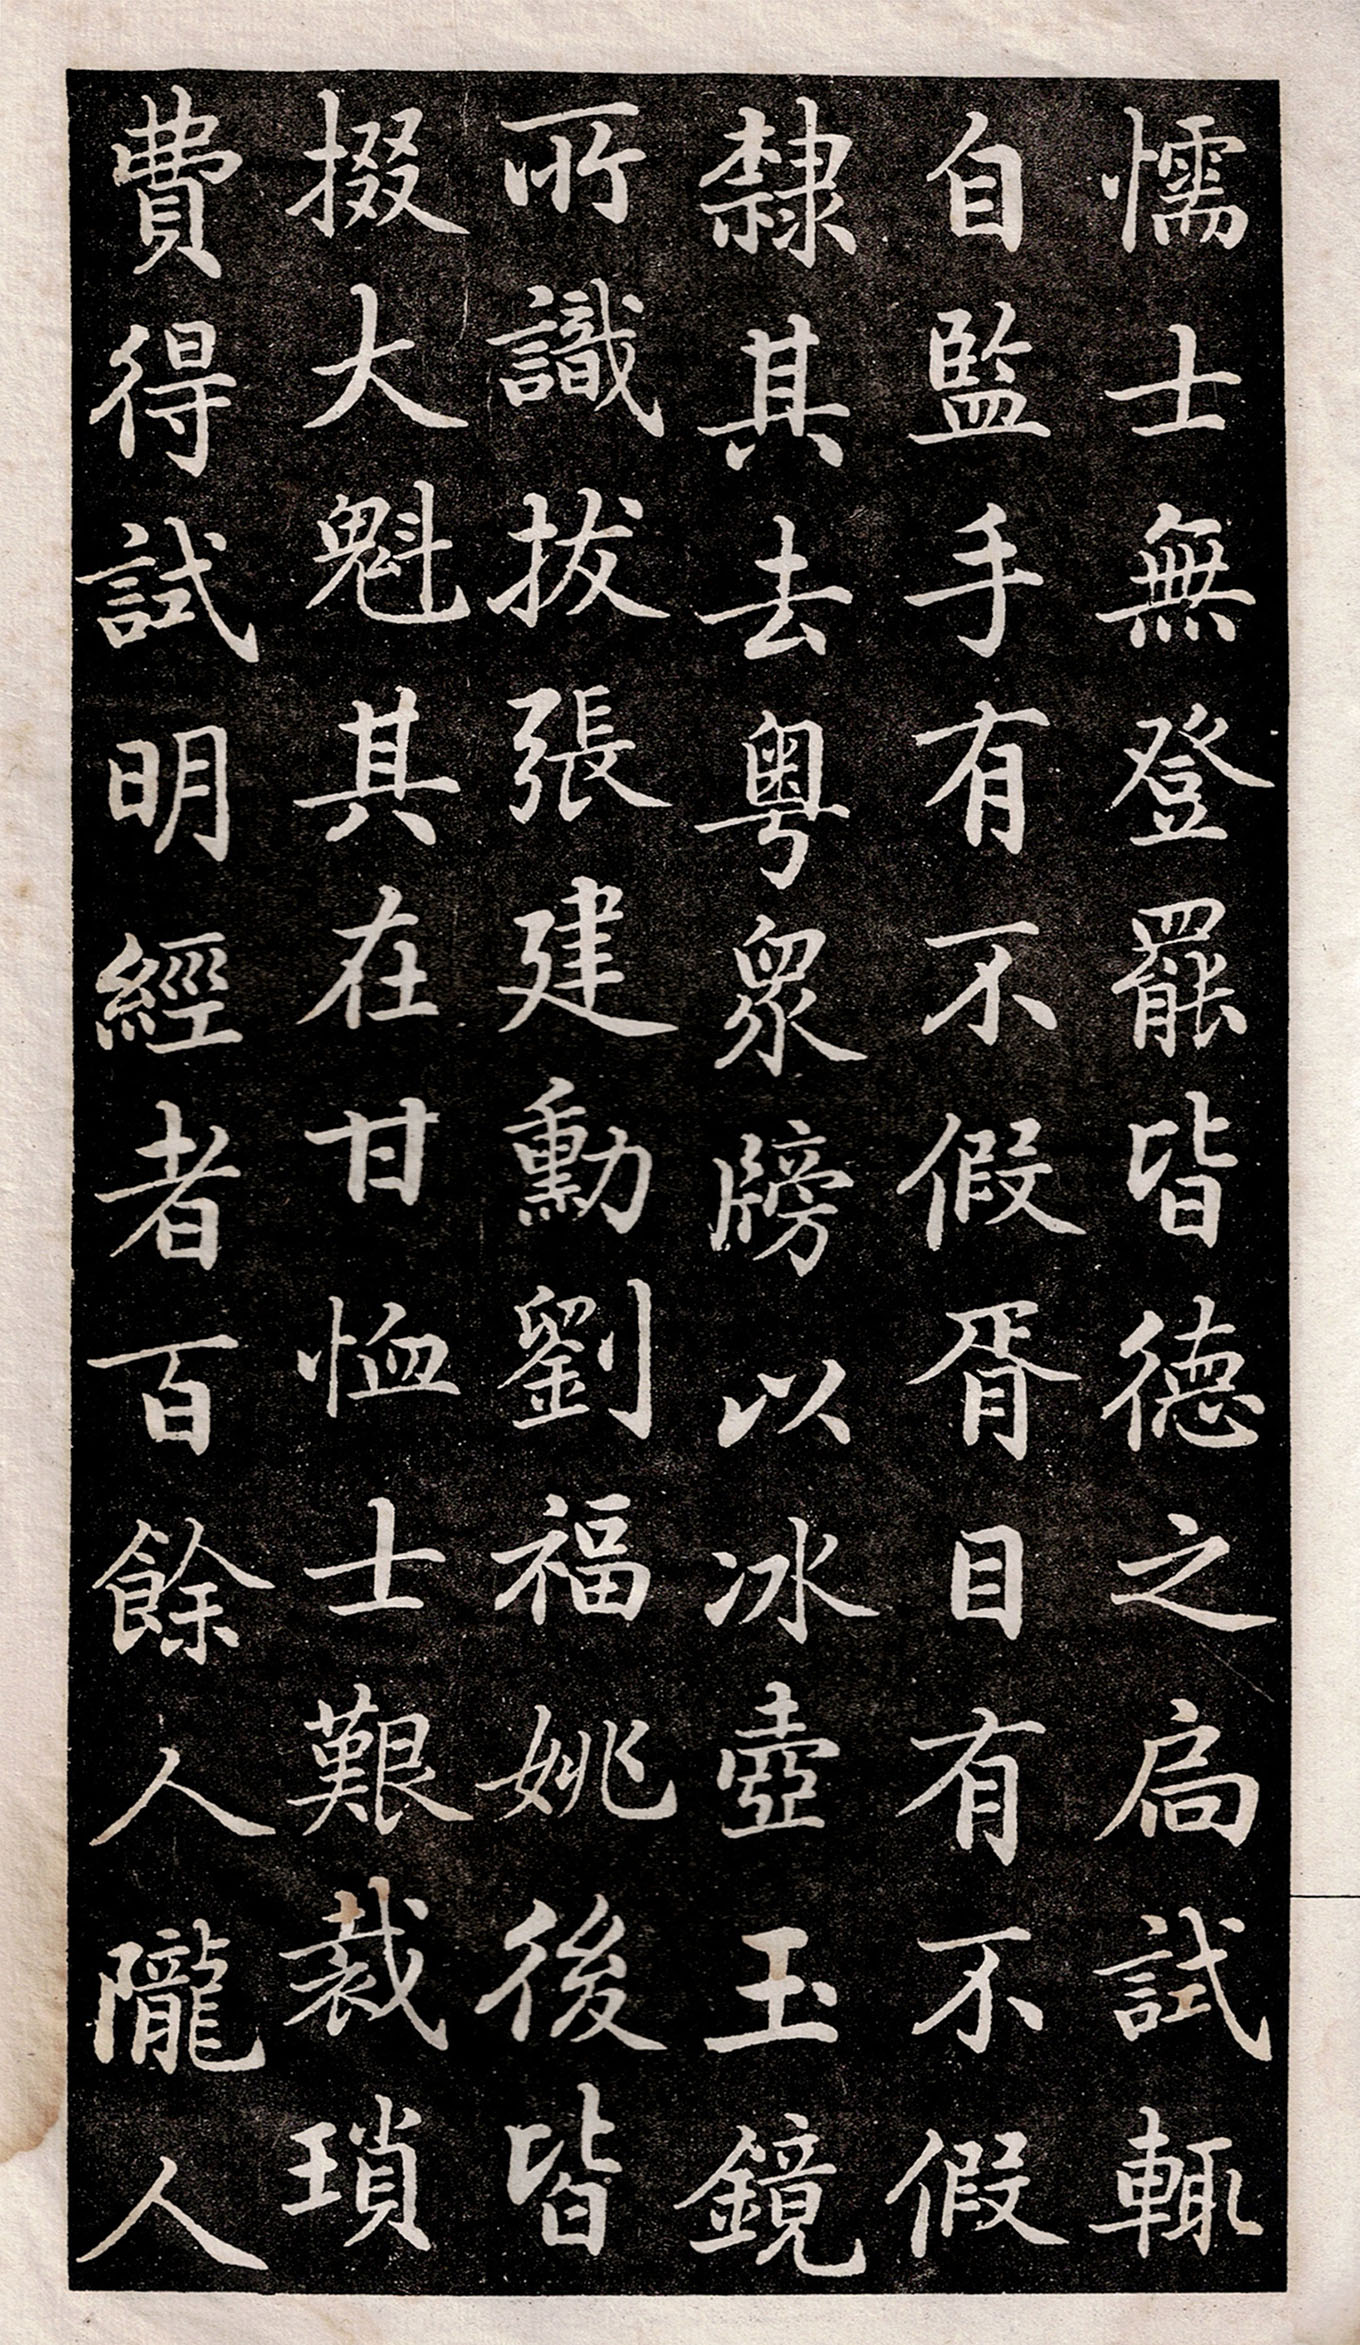 懦士無登罷皆德之扃試輒
自監手有不假胥目有不假
隸其去粵眾牓以冰壺玉鏡
所識拔張建勳劉福姚後皆
掇大魁其在甘恤士艱裁瑣
費得試明經者百餘人隴人